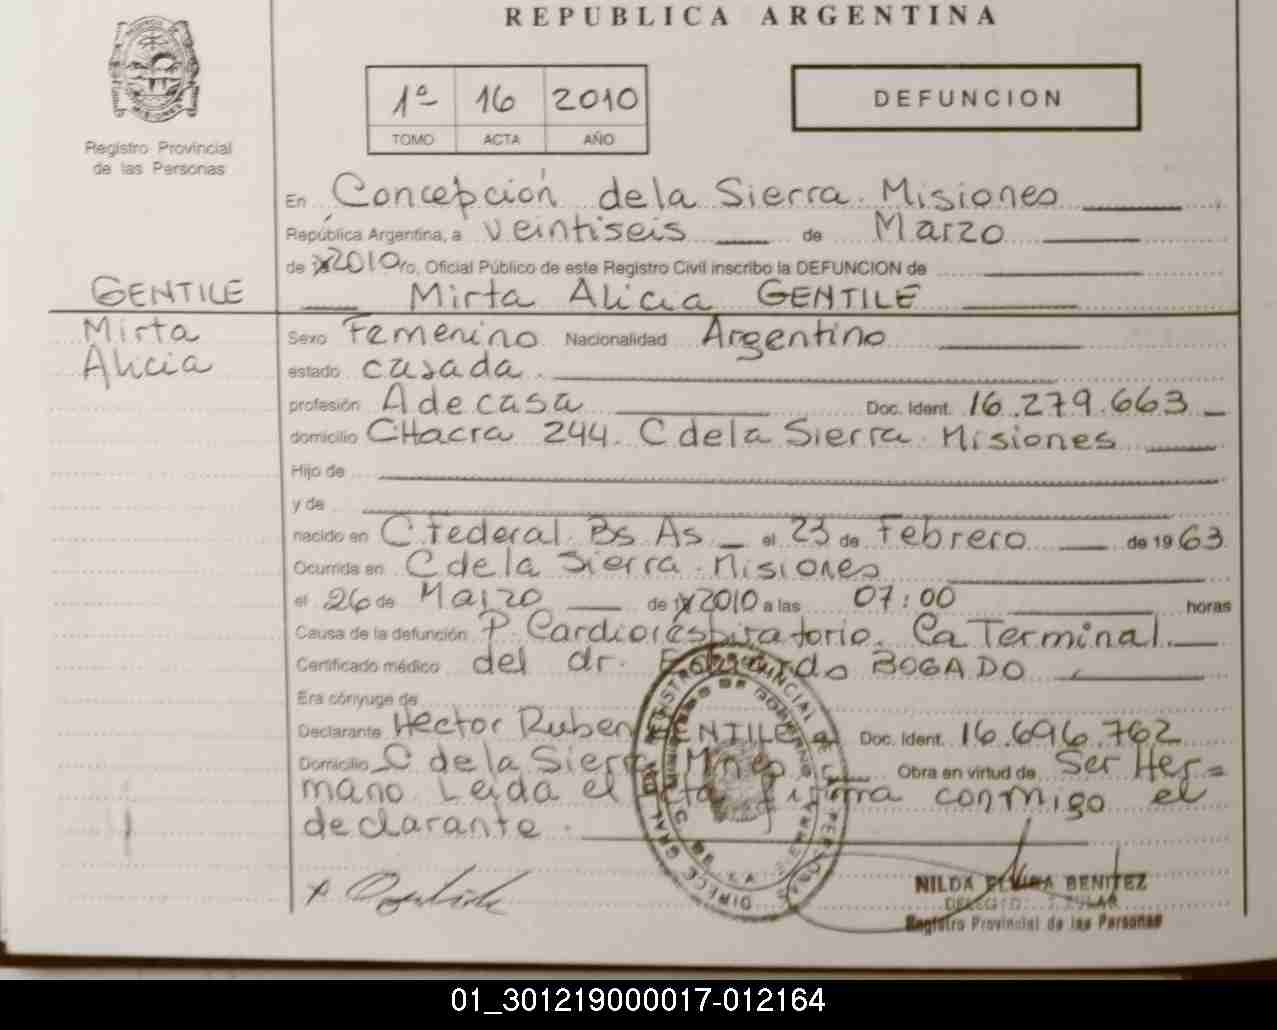 REPUBLICA ARGENTINA
1º 16 2010
TOMO ACTA AÑO
DEFUNCION
Registro Provincial
de las Personas
En Concepción de la Sierra. Misiones
República Argentina, a veintiseis de Marzo
de 2010 ro, Oficial Público de este Registro Civil inscribo la DEFUNCION de
GENTILE
Mirta Alicia GENTILE
Mirta
Alicia
Sexo Femenino Nacionalidad Argentino
estado casada.
profesión A de casa Doc. Ident. 16.279.663
domicilio CHacra 244. C de la Sierra. Misiones
Hijo de
y de
nacido en C Federal Bs As el 23 de Febrero de 1963
Ocurrida en C de la Sierra. Misiones
el 26 de Marzo de 2010 a las 07:00 horas
Causa de la defunción P Cardiorespiratorio. Ca Terminal.
Certificado médico del dr. BOGADO
Era cónyuge de
Declarante Hector Ruben GENTILE Doc. Ident. 16.696.762
Domicilio C de la Sierra Mnes Obra en virtud de Ser Her=
mano Leida el Acta firma conmigo el
declarante.
NILDA ELVIRA BENITEZ
Registro Provincial de las Personas
01_301219000017-012164